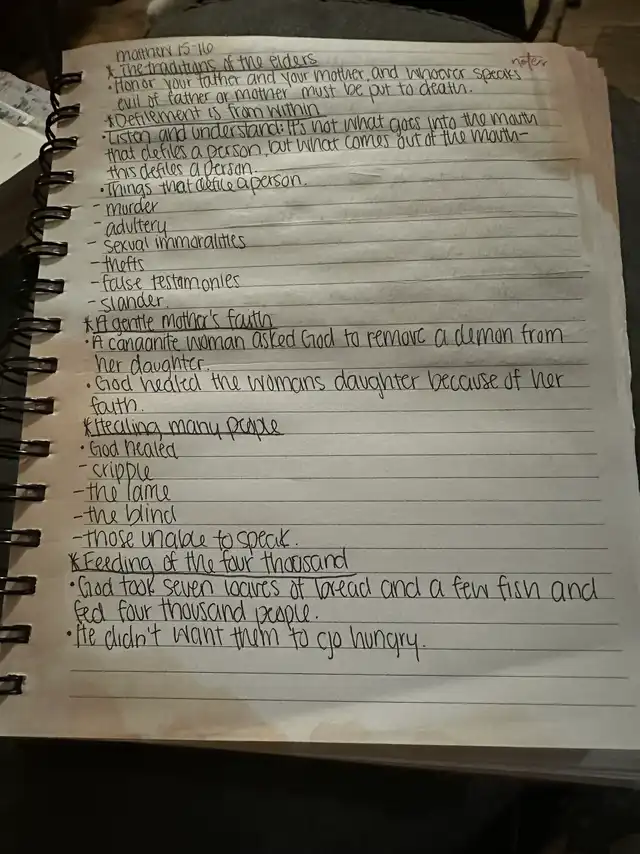 matthew 15-16
notes
* The traditions of the elders
• Honor your father and your mother, and whoever speaks
evil of father or mother must be put to death.
* Defilement is from within
• Listen and understand: It's not what goes into the mouth
that defiles a person, but what comes out of the mouth-
this defiles a person.
• Things that defile a person.
- murder
- adultery
- sexual immoralities
- thefts
- false testimonies
- slander.
* A gentle mother's faith
• A canaanite woman asked God to remove a demon from
her daughter.
• God healed the womans daughter because of her
faith.
* Healing many people
• God healed
- cripple
- the lame
- the blind
- those unable to speak.
* Feeding of the four thousand
• God took seven loaves of bread and a few fish and
fed four thousand people.
• He didn't want them to go hungry.